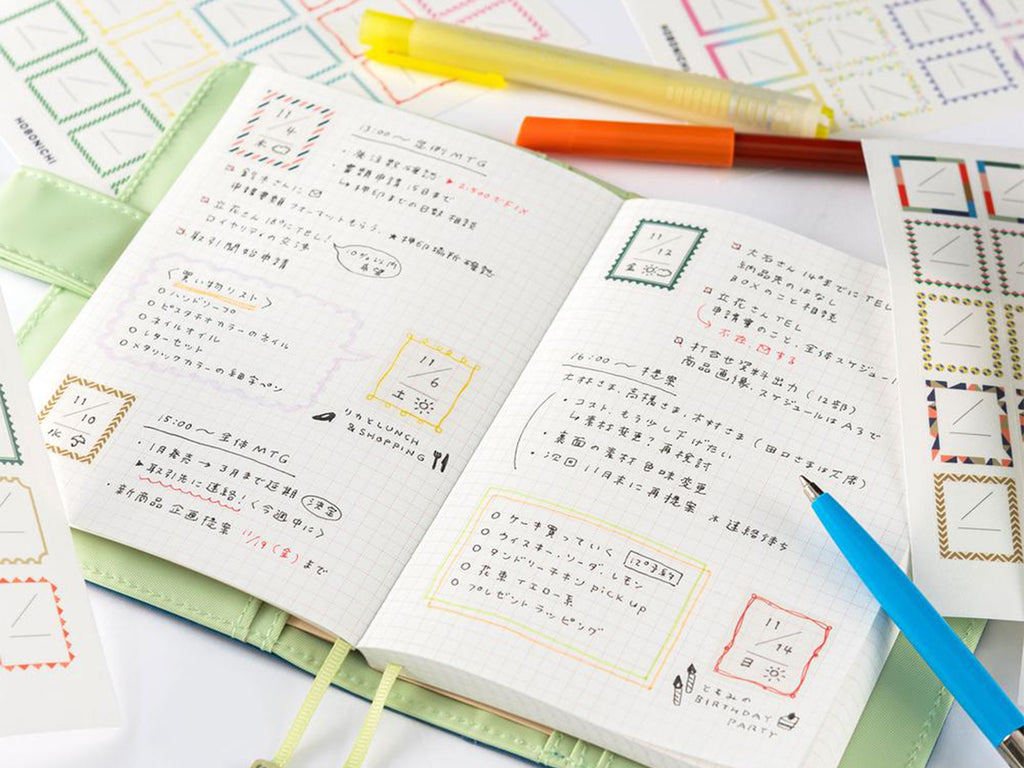 HOBONICHI
HOBONICHI
11/4
木
13:00〜 全体MTG
・発注数確認 ▶2,500でFIX
・書類申請 15日まで
↳押印までの日数相談
★押印場所確認
□ 鈴木さんに✉
申請書類フォーマットもらう、
□ 立花さん 18:00にTEL!
ロイヤリティの交渉
□ 取引開始申請
〈買い物リスト〉
○ ハンドソープ
○ ピスタチオカラーのネイル
○ ネイルオイル
○ レターセット
○ メタリックカラーの細字ペン
11/6
土
りかとLUNCH
&SHOPPING
11/10
水
15:00〜 全体MTG
・1月発売→3月まで延期 決定
▶取引先に連絡!〈今週中に〉
・新商品 企画提案 11/19(金)まで
11/12
金
□ 大石さん 14:00までにTEL
納品先のはなし
BOXのこと相談
□ 立花さんTEL
申請書のこと、全体スケジュール
不在 ✉する
□ 打合せ資料出力(12部)
商品画像、スケジュールはA3で
16:00〜 提案
大林さま、高橋さま、木村さま(田口さまは欠席)
・コスト、もう少し下げたい
↳素材変更?再検討
・裏面の素材 色味変更
・次回 11月末に再提案 ※連絡待ち
○ ケーキ買っていく
○ ウイスキー、ソーダ、レモン
○ タンドリーチキン pick up
○ 花束 イエロー系
○ プレゼントラッピング
11/14
日
ともみの
BIRTHDAY
PARTY